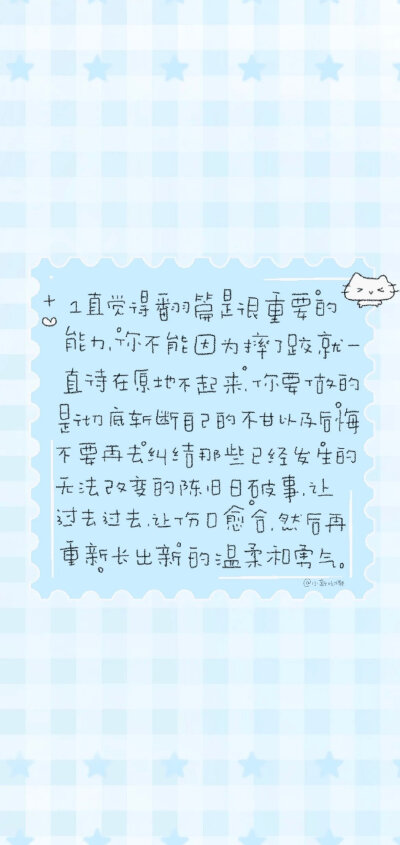 1直觉得翻篇是很重要的
能力,你不能因为摔了跤,就一
直待在原地不起来,你要做的
是切底斩断自己的不甘以及后悔
不要再去纠结那些已经发生的
无法改变的陈旧日破事,让
过去过去,让伤口愈合,然后再
重新长出新的温柔和勇气。